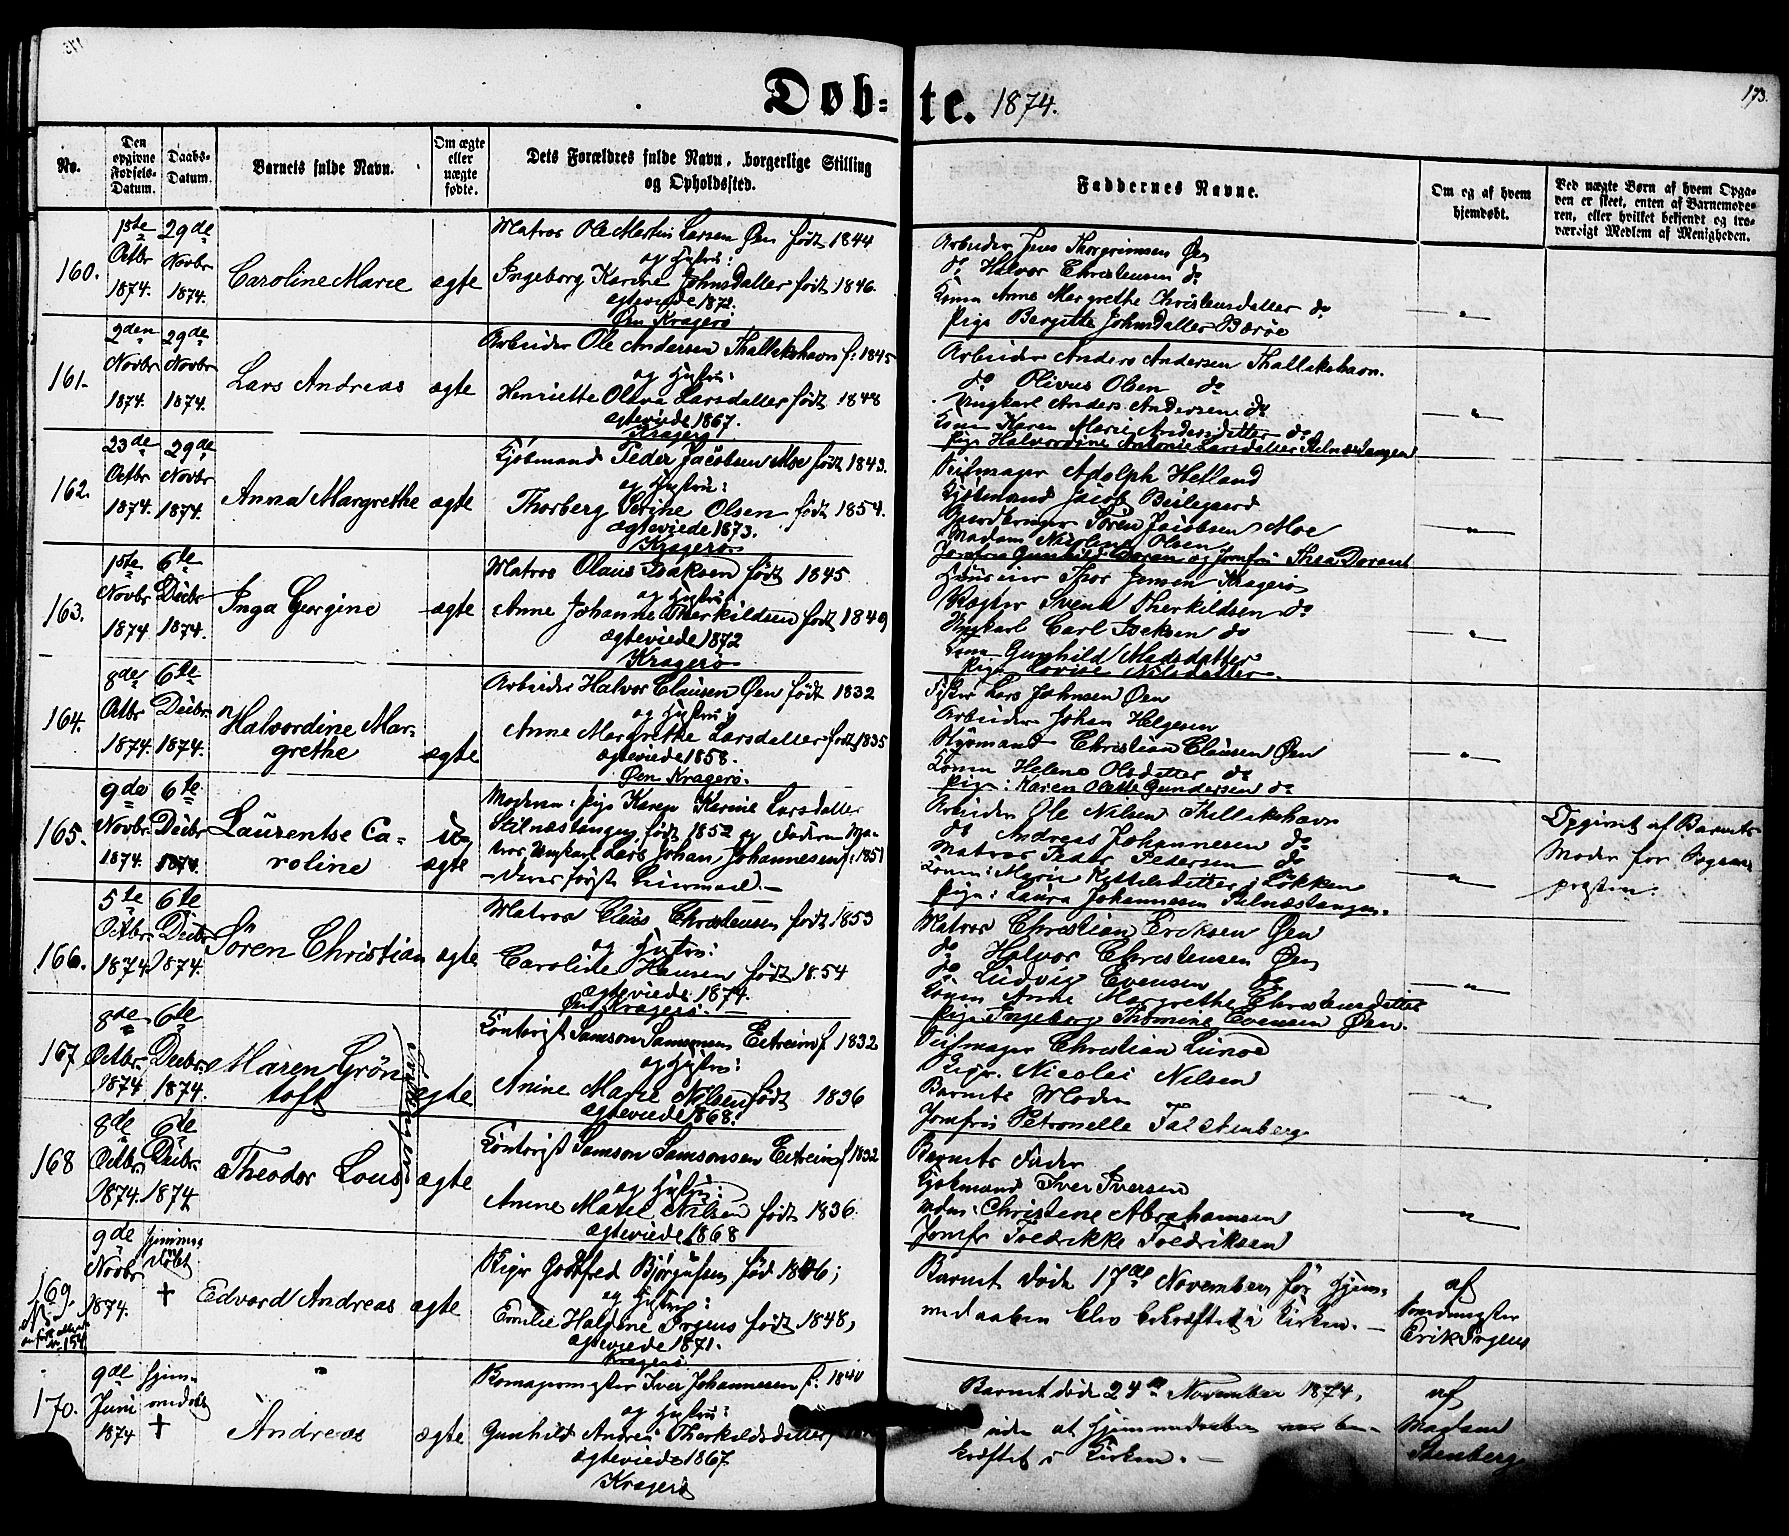 Døb-te. 1874.
173.
No.
Den opgivne Fødsels-Datum.
Daabs-Datum.
Barnets fulde Navn.
Om ægte eller uægte fødte.
Dets Forældres fulde Navn, borgerlige Stilling og Opholdssted.
Faddernes Navne.
Om og af hvem hjemdøbt.
Ved uægte Børn af hvem Opgaven er skeet, enten af Barnemoderen, eller hvilket bekjendt og troværdigt Medlem af Menigheden.
160.
1ste Octbr 1874.
29de Novbr 1874.
Caroline Marie
ægte
Matros Ole Martin Larsen Øen født 1844
og Hustru:
Ingeborg Karine Johnsdatter født 1846.
ægteviede 1872.
Øen Kragerø
Arbeider Jens Thorgrimsen Øen
do Halvor Christensen do
Konen Anne Margrethe Christensdatter do
Pige Bergitte Johnsdatter Barøe
161.
2den Novbr 1874.
29de Novbr 1874.
Lars Andreas
ægte
Arbeider Ole Andersen Thallakshavn f: 1845
og Hustru:
Henriette Olava Larsdatter født 1848
ægteviede 1867.
Kragerø
Arbeider Anders Andersen Thallakshavn.
do Olivus Olsen do
Ungkarl Anders Andersen do
Kone Karen Marie Andersdatter do
Pige Halvordine Antonie Larsdatter Stilnæstangen
162.
23de Octbr 1874.
29de Novbr 1874.
Anna Margrethe
ægte
Kjøbmand Peder Jacobsen Moe født 1843.
og Hustru:
Thorberg Serine Olsen født 1854.
ægteviede 1873.
Kragerø
Seilmager Adolph Hetland
Kjøbmand Jacob Beilegaard
Gaardbruger Søren Jacobsen Moe
Madam Nicoline Olsen
Jomfru Gunhild Dorant og Jomfru Thea Dorant
163.
1ste Novbr 1874
6te Decbr 1874.
Inga Georgine
ægte
Matros Olaus Isaksen født 1845.
og Hustru:
Anne Johanne Therkildsen født 1849
ægteviede 1872
Kragerø
Thor Jensen Kragerø
Vægter Svend Therkildsen do
Ungkarl Carl Isaksen do
Kone Gunhild Madsdatter
Pige Lovise Nilsdatter.
164.
8de Octbr 1874.
6te Decbr 1874.
Halvordine Margrethe
ægte
Arbeider Halvor Clausen Øen født 1832
og Hustru
Anne Margrethe Larsdatter født 1835
ægteviede 1858.
Øen Kragerø.
Fisker Lars Johnsen Øen
Arbeider Johan Helgesen
Styrmand Christian Clausen Øen
Konen Helene Olsdatter do
Pige: Karen Olette Gundersen do
165.
9de Novbr 1874.
6te Decbr 1874.
Laurentse Caroline
uægte
Moderen: Pige Karen Karine Larsdatter
Stilnæstangen, født 1852 og Faderen Matros Ungkarl Lars Johan Johannesen f: 1851
– Deres første Leiermaal. –
Arbeider Ole Nilsen Thallakshavn
do Andreas Johannesen do
Matros Peder Pedersen do
Konen: Marie Kettelsdatter Løkken
Pige: Laura Johannesen Stilnæstangen.
Opgivet af Barnets
Moder for Sogne-
præsten.
166.
5te Octbr 1874.
6te Decbr 1874.
Søren Christian
ægte
Matros Claus Christensen født 1853
og Hustru:
Caroline Hansen født 1854
ægteviede 1874.
Øen Kragerø.
Matros Christian Ericksen Øen
do Halvor Christensen Øen
do Ludvig Evensen do
Konen Anne Margrethe Christensdatter
Pige Ingeborg Thomine Evensen Øen.
167
8de Octbr. 1874
6te Decbr. 1874.
Maren Gröntoft
ægte
Kontorist Samson Samsonsen Eitreim f 1832
og Hustru:
Anine Marie Nilsen født 1836
ægteviede 1868.
Seilmager Christian Lunoe
Nicolai Nilsen
Barnets Moder
Jomfru Petronelle Falkenberg
168
8de Octbr 1874.
6te Decbr. 1874
Theodor Lous
ægte
Kontorist Samson Samsonsen Eitreim f 1832
og Hustru:
Anine Marie Nilsen født 1836.
ægteviede 1868
Barnets Fader
Kjøbmand Iver Iversen
Mdm: Christene Abrahamsen
Jomfr Fredrikke Fredriksen
169.
9de Novbr 1874.
hjemmedøbt
†
Edvard Andreas
ægte
Godtfred Bjørgufsen født 1846;
og Hustru:
Emilie Halfine Irgens født 1848,
ægteviede 1871.
Kragerø.
Barnet døde 17de November før Hjem-
medaaben blev bekræftet i Kirken. –
af
Erik Irgens
170.
9de Juni 1874
hjemmedøbt
†
Andreas
ægte
Iver Johannesen f: 1840
og Hustru:
Gunhild Andrea Therkildsdatter
ægteviede 1867.
Kragerø
Barnet døde 24de November 1874,
uden at Hjemmedaaben var be-
kræftet i Kirken. –
af
Madam
Stenberg